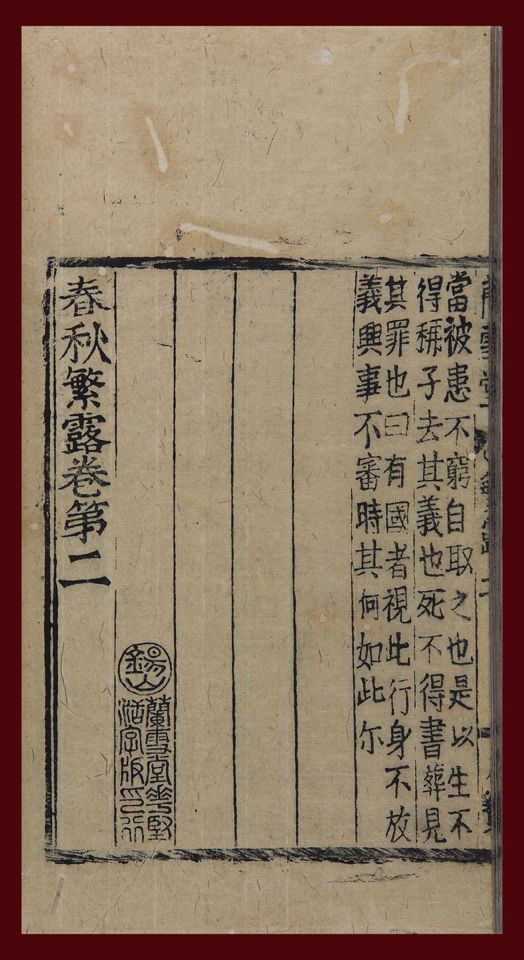 當被患不窮自取之也是以生不
得稱子去其義也死不得書葬見
其罪也曰有國者視此行身不放
義興事不審時其何如此尔
錫山
蘭雪堂華堅
活字版印行
春秋繁露卷第二